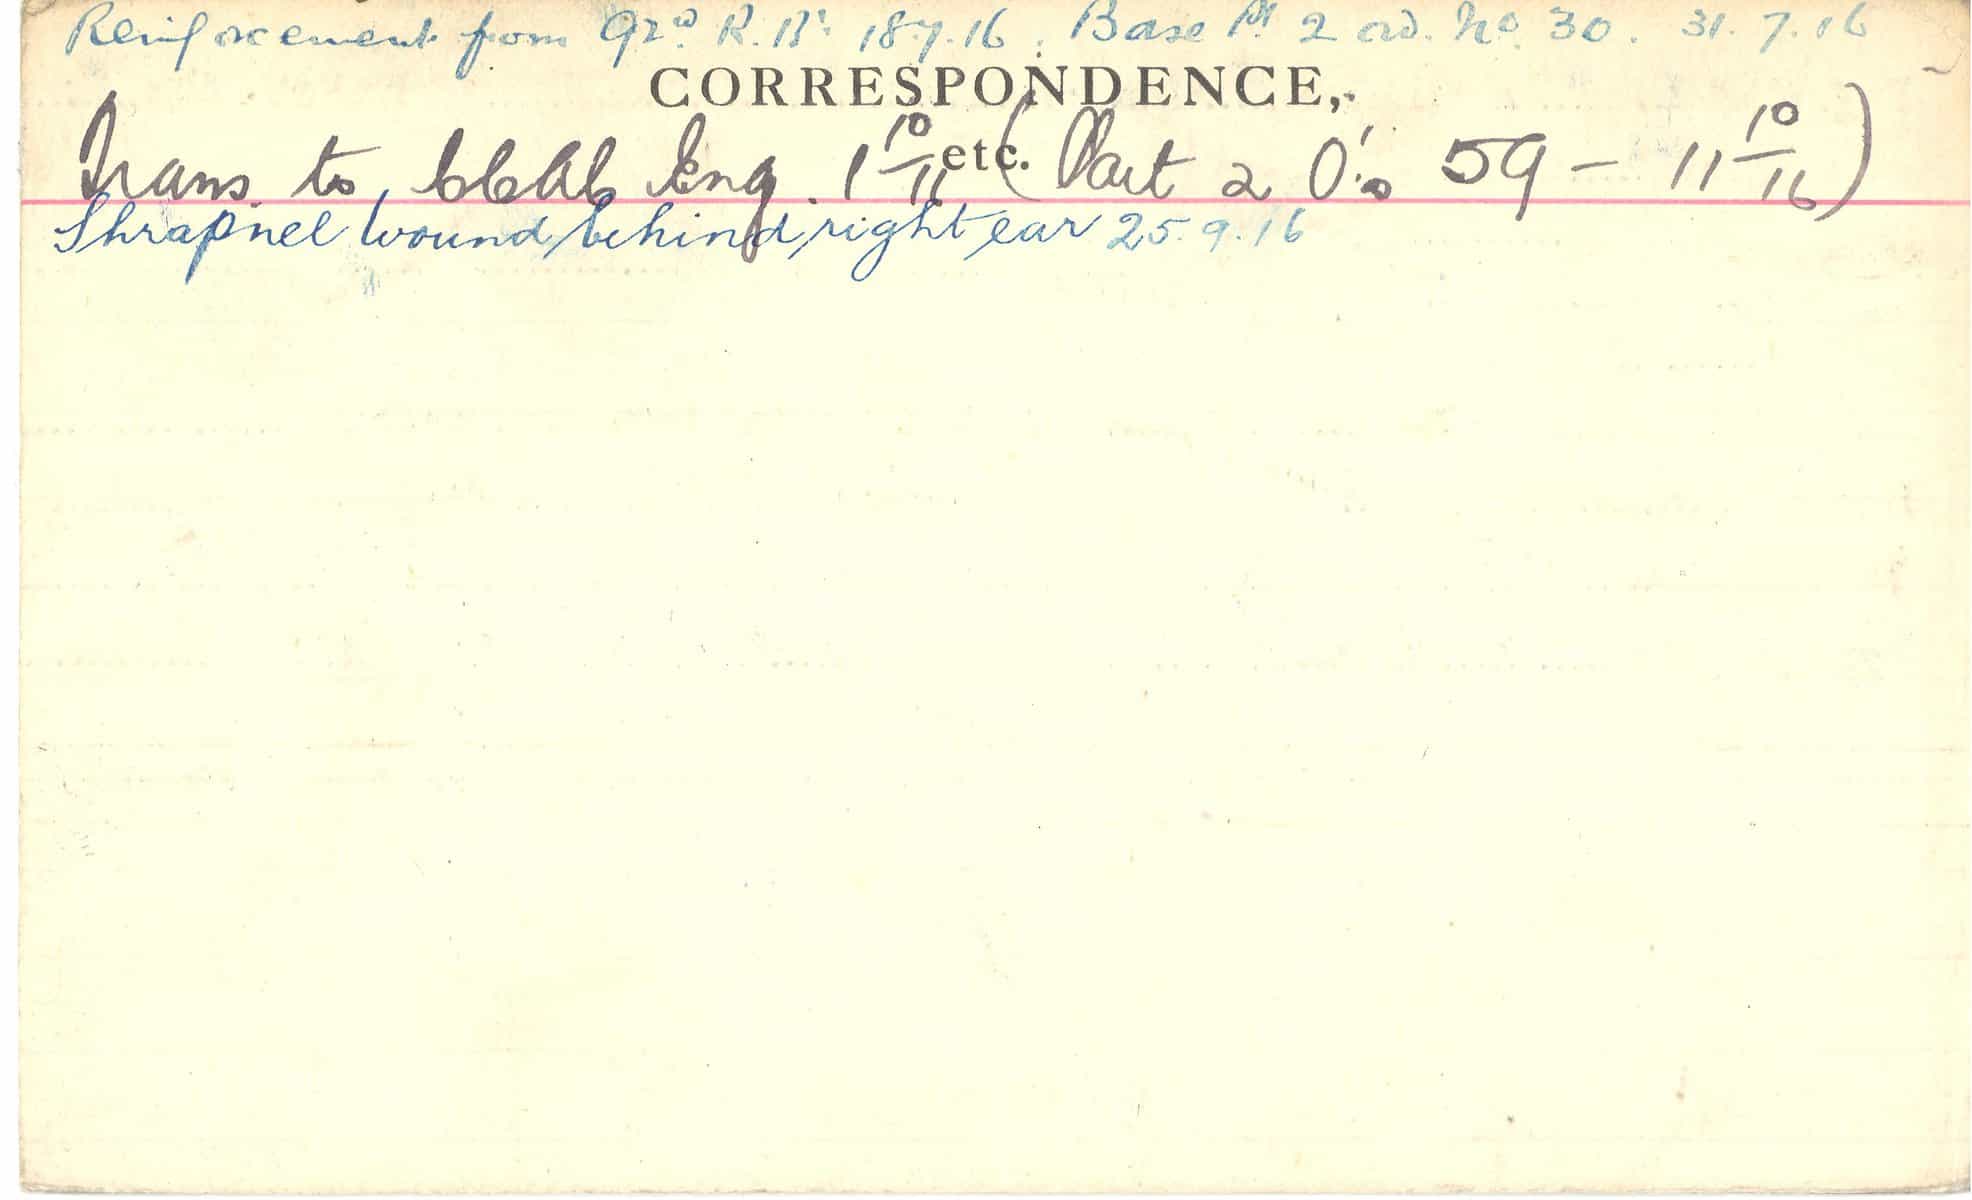 Reinforcement from 92nd R. Bn 18.7.16. Base Pt 2 ord. No. 30. 31.7.16
CORRESPONDENCE,
Trans. to CCAC Eng. 1 10/16 etc. (Part 2 O's 59 - 11 10/16)
Shrapnel wound, behind, right ear 25.9.16